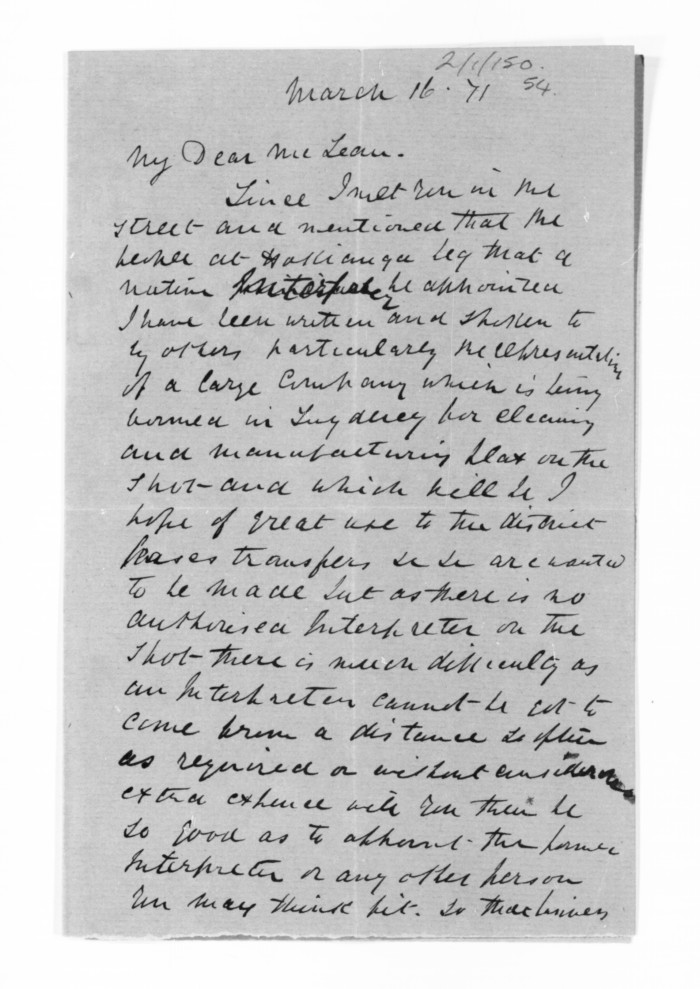 2/1/150.
54.
March 16. 71
My Dear McLean.
Since I met you in the
street and mentioned that the
people at Hokianga beg that a
native Interpreter be appointed
I have been written and spoken to
by others particularly the representative
of a large Company which is being
formed in Sydney for cleaning
and manufacturing flax on the
spot and which will be I
hope of great use to the district
leases transfers &c &c are wanted
to be made but as there is no
authorised Interpreter on the
spot there is much difficulty as
an Interpreter cannot be got to
come from a distance so often
as required or without considerable
extra expence will you then be
so good as to appoint the former
Interpreter or any other person
you may think fit. so that